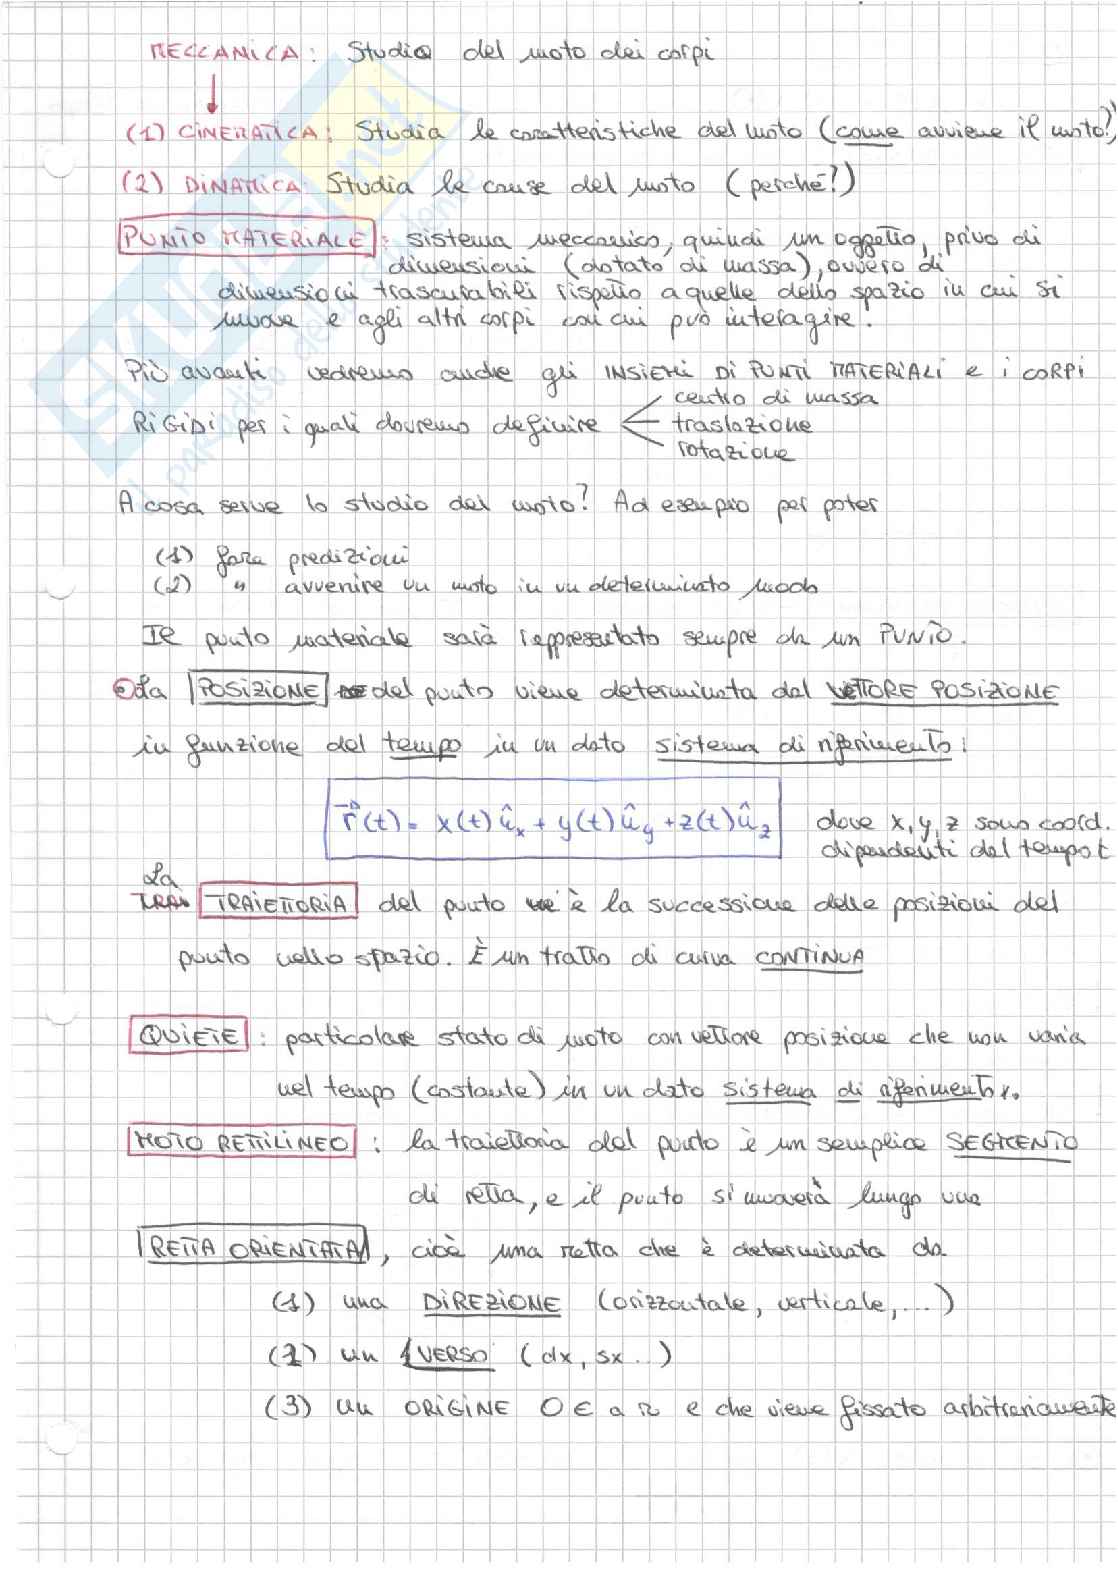 MECCANICA: Studio del moto dei corpi
(1) CINEMATICA: Studia le caratteristiche del moto (come avviene il moto?)
(2) DINAMICA: Studia le cause del moto (perché?)
PUNTO MATERIALE: sistema meccanico, quindi un oggetto, privo di
dimensioni (dotato di massa), ovvero di
dimensioni trascurabili rispetto a quelle dello spazio in cui si
muove e agli altri corpi con cui può interagire.
Più avanti vedremo anche gli INSIEMI DI PUNTI MATERIALI e i CORPI
centro di massa
RIGIDI per i quali dovremo definire traslazione
rotazione
A cosa serve lo studio del moto? Ad esempio per poter
(1) fare predizioni
(2) " avvenire un moto in un determinato modo
Il punto materiale sarà rappresentato sempre da un PUNTO.
La POSIZIONE del punto viene determinata dal VETTORE POSIZIONE
in funzione del tempo in un dato sistema di riferimento:
r⃗(t) = x(t) û_x + y(t) û_y + z(t) û_z dove x, y, z sono coord.
dipendenti dal tempo t
La
TRAIETTORIA del punto è la successione delle posizioni del
punto nello spazio. È un tratto di curva CONTINUA
QUIETE: particolare stato di moto con vettore posizione che non varia
nel tempo (costante) in un dato sistema di riferimento.
MOTO RETTILINEO: la traiettoria del punto è un semplice SEGMENTO
di retta, e il punto si muoverà lungo una
RETTA ORIENTATA, cioè una retta che è determinata da
(1) una DIREZIONE (orizzontale, verticale, ...)
(2) un VERSO (dx, sx...)
(3) un ORIGINE O ∈ a r e che viene fissato arbitrariamente
SKUOLA.net
il paradiso dello studente